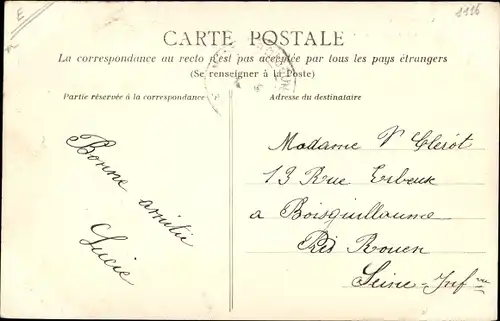 E
1196
CARTE POSTALE
La correspondance au recto n'est pas acceptée par tous les pays étrangers
(Se renseigner à la Poste)
Partie réservée à la correspondance
Adresse du destinataire
Bonne amitié
Lucie
Madame Vᵉ Clérot
13 Rue Erbeuse
à Boisguillaume
Près Rouen
Seine-Infʳᵉ